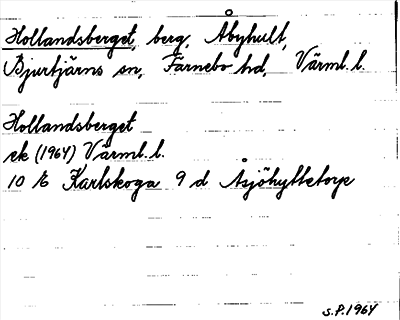 Hollandsberget, berg, Åbyhult,
Bjurtjärns sn, Färnebo hd, Värml. l.
Hollandsberget
ek (1964) Värml. l.
10 E Karlskoga 9 d Åsjöhyttetorp
S.P. 1964